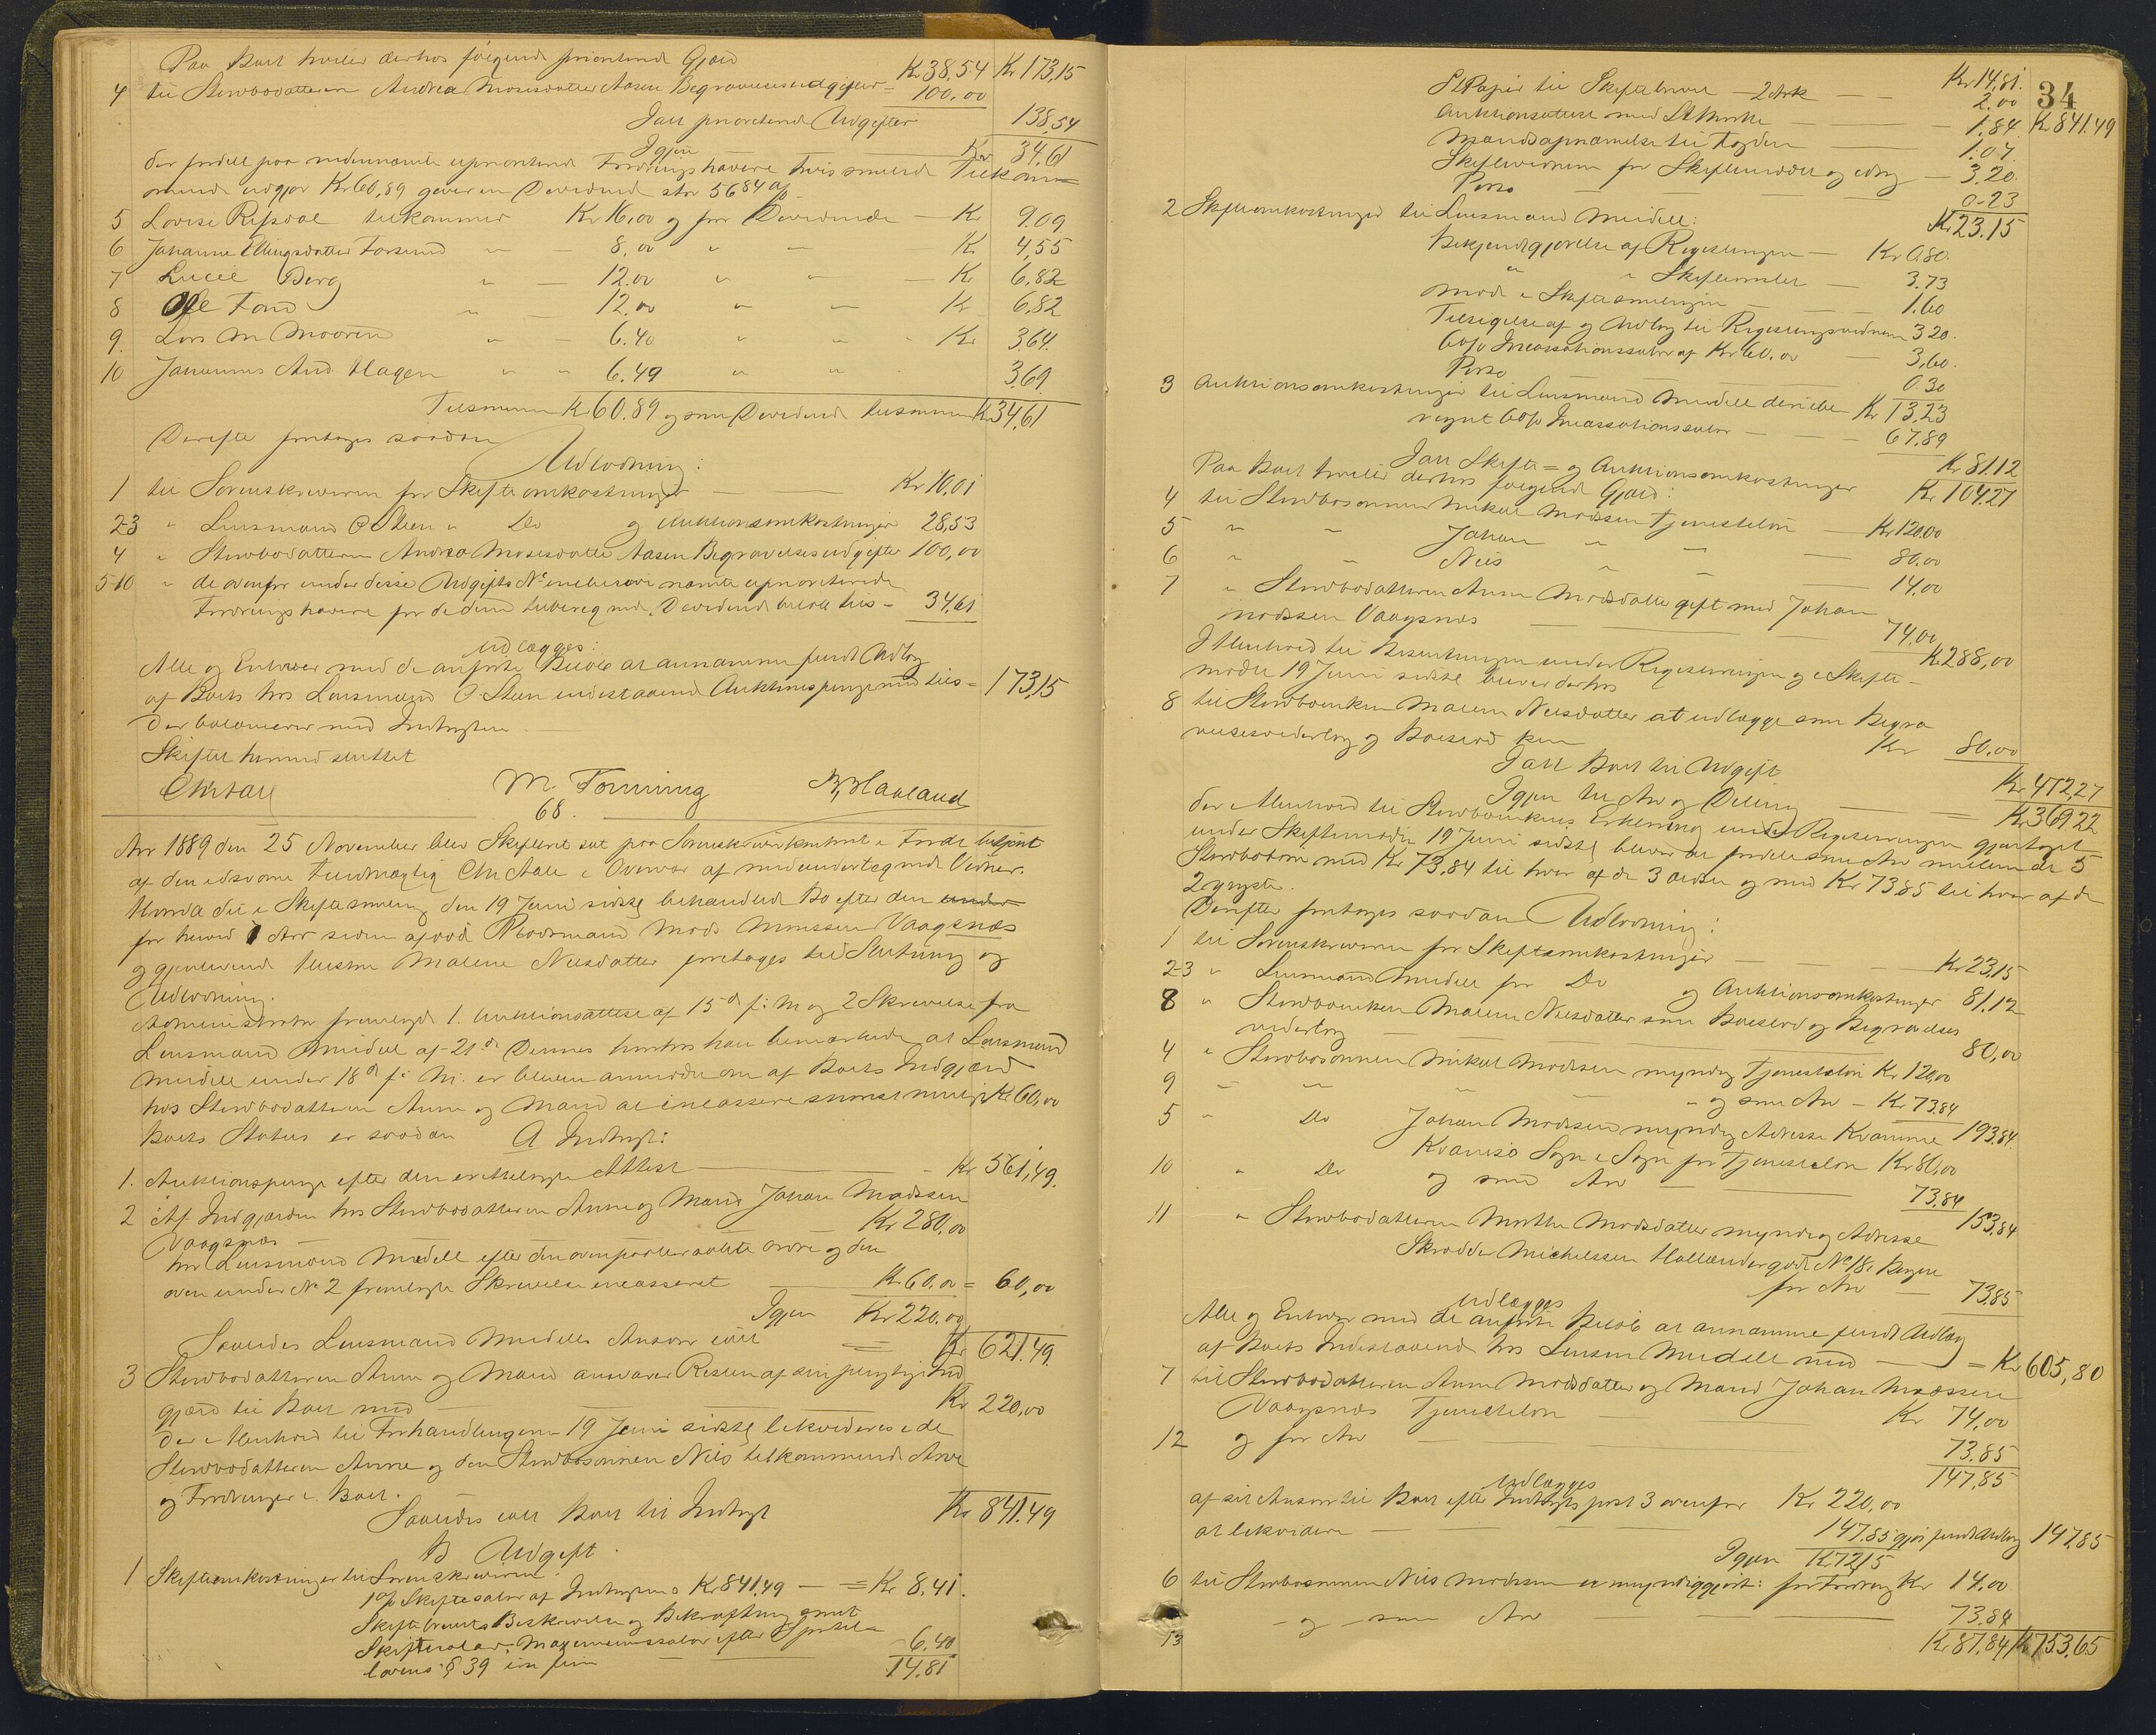 Paa Boet hviler derhos følgende prioriterede Gjæld Kr 38,54 Kr 173,15
4 til Stervbodatteren Andrea Mosesdatter Aasen Begravelsesudgifter = 100,00
Ialt prioriterede Udgifter 138,54
Igjen Kr 34,61
der fordelt paa nedennævnte uprioriterede Fordringshavere hvis samlede Tilkom=
mende udgjør Kr 60,89 giver en Dividende stor 56 84 %
5 Lovise Refsdal tilkommer Kr 16,00 og faar Dividende — Kr 9.09
6 Johanne Ellingsdatter Forsund " — 8,00 " — Kr 4,55
7 Lucie Berg " — 12.00 " " — Kr 6,82
8 Ole Fand " — 12,00 " — Kr 6,82
9. Lars M Mooren " — 6.40 " " Kr 3,64.
10 Johannes And. Hagen " " 6.49 " " 3,69
Tilsammen Kr 60.89 og som Dividende tilsammen Kr 34,61
Derefter foretages saadan
Udlodning:
1 til Sorenskriveren for Skifteomkostninger — Kr 10,01
2-3 " Lensmand O Steen " Do og Auktionsomkostninger 28,53
4 " Stervbodatteren Andrea Mosesdatter Aasen Begravelsesudgifter 100,00
5-10 " de ovenfor under disse Udgifts No nævnte uprioriterede
Fordringshavere for de dem tilberegnede Dividende beløb tils — 34,61
udlægges:
Alle og Enhver med de anførte Beløb at annamme fuldt Udlæg
af Boets hos Lensmand O Steen indestaaende Auktionspenge med tils = 173,15
der balancerer med Indtægten
Skiftet hermed sluttet
Chr Aall M. Forning B. Havland
68.
Aar 1889 den 25 November blev Skifteret sat paa Sorenskriverkontoret i Førde betjent
af den edsvorne Fuldmægtig Chr Aall i Overvær af medundertegnede Vidner.
Hvorda det i Skiftesamling den 19 Juni sidstl behandlede Bo efter den under
for henved 1 Aar siden afdøde Mads Monssen Vaagsnæs
og gjenlevende Hustru Malene Nilsdatter foretages til Slutning og
Udlodning.
Administrator fremlagde 1. Auktionsattest af 15de f: M og 2 Skrivelse fra
Lensmand Meidell af 21de Dennes hvorhos han bemærkede at Lensmand
Meidell under 18de f: M: er bleven anmodet om af Boets Indgjæld
hos Stervbodatteren Anne og Mand at incassere snarest mulig Kr 60,00
Boets Status er saadan A Indtægt:
1. Auktionspenge efter den erhvervede Attest — Kr 561,49.
2 Af Indgjælden hos Stervbodatteren Anne og Mand Johan Madssen
Vaagsnæs — Kr 280,00
har Lensmand Meidell efter den ovenpaaberaabte Ordre og den
oven under No 2 fremlagte Skrivelse incasseret — Kr 60,00 = 60,00
Igjen Kr 220.00
Saaledes Lensmand Meidells Ansvar ialt = Kr 621.49.
3 Stervbodatteren Anne og Mand ansvarer Resten af sin pengelige Ind
gjæld til Boet med — Kr 220,00
der i Henhold til Forhandlingerne 19 Juni sidstl likvideres i de
Stervbodatteren Anne og den Stervbosønnen Nils tilkommende Arve
og Fordringer i Boet.
Saaledes ialt Boet til Indtægt Kr 841.49
B Udgift.
1 Skifteomkostninger til Sorenskriveren:
1 % Skiftesalær af Indtægterne Kr 841,49 — = Kr 8.41.
Skiftebrevets Beskrivelse og Bekræftning samt
Skiftesalær. Maximumssalær efter Sportel=
lovens § 39 in fine — 6.40
14.81
34
Kr 14,81.
St Papir til Skiftebrevet — 2 Ark — 2.00 Kr 841.49
Auktionsattest med St Mærke — 1.84
Mandsopnævnelse til Fogden — 1.07.
Skiftevidnerne for Skiftemøder og idag — 3,20.
Porto 0-23
Kr 23.15
2 Skifteomkostninger til Lensmand Meidell:
Bekjendtgjørelse af Registreringen — Kr 0.80.
" " Skiftesamlet — 3.73
Møde i Skiftesamlingen — 1.60
Tilsigelse af og Udlæg til Registreringsvidnerne 3 20.
6 % Incassationssalær af Kr 60.00 — 3,60.
Porto 0.30
Kr 13,23
3 Auktionsomkostninger til Lensmand Meidell deriblandt
regnet 6 % Incassationssalær — 67.89
Kr 81.12
Ialt Skifte= og Auktionsomkostninger Kr 104.27
Paa Boet hviler derhos følgende Gjæld:
4 til Stervbosønnen Mikkel Madssen Tjenesteløn — Kr 120.00
5 " " Johan " — 80.00
6 " " Nils " — 14,00
7 " Stervbodatteren Anne Madsdatter gift med Johan
Madssen Vaagsnæs — 74.00
Kr 288,00
I Henhold til Beslutningen under Registreringen og i Skifte-
mødet 19 Juni sidstl bliver derhos
8 til Stervboenken Malene Nilsdatter at udlægge som Begra
velsesvederlag og Boeslod kun Kr 80.00
Ialt Boet til Udgift Kr 472,27
Igjen til Arv og Deling — Kr 369 22
der i Henhold til Stervboenkens Erklæring under Registreringen gjentaget
under Skiftemødet 19 Juni sidstl bliver at fordele som Arv mellem de 5
Stervbobørn med Kr 73,84 til hver af de 3 ældste og med Kr 73 85 til hver af de
2 yngste.
Derefter foretages saadan Udlodning:
1 til Sorenskriveren for Skifteomkostninger — Kr 23,15
2-3 " Lensmand Meidell for Do og Auktionsomkostninger 81.12
8 " Stervboenken Malene Nilsdatter som Boeslod og Begravelses
vederlag — 80,00
4 " Stervbosønnen Mikkel Madssen myndig Tjenesteløn Kr 120,00
9 — " og som Arv — Kr 73,84
193,84.
5 " Do Johan Madssen myndig Adresse Kvamme
Sogn i Sogn for Tjenesteløn Kr 80,00
10 " Do og som Arv — 73,84
153,84
11 " Stervbodatteren Marthe Madsdatter myndig Adresse
Skrædder Michelssen Hollændergade No 18. Bergen
for Arv — 73,85
udlægges
Alle og Enhver med de anførte Beløb at annamme fuldt Udlæg
af Boets Indestaaende hos Lensm Meidell med — = Kr 605,80
7 til Stervbodatteren Anne Madsdatter og Mand Johan Madssen
Vaagsnæs Tjenesteløn — Kr 74,00
12 og for Arv — 73.85
147,85
udlægges
af sit Ansvar til Boet efter Indtægts post 3 ovenfor Kr 220,00
at likvidere — 147.85 gjør fuldt Udlæg 147,85
Igjen Kr 72,15
6 til Stervbosønnen Nils Madssen er myndiggjort: for Fordring Kr 14.00
13 — og som Arv — 73.84
Kr 87,84 Kr 753,65